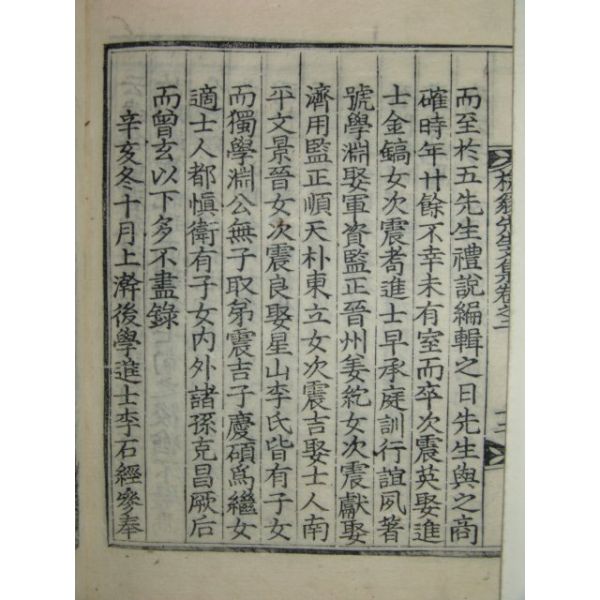 先生文集卷之二
而至於五先生禮說編輯之日先生與之商
確時年廿餘不幸未有室而卒次震英娶進
士金鎬女次震耈進士早承庭訓行誼夙著
號學淵娶軍資監正晉州姜紞女次震獻娶
濟用監正順天朴東立女次震吉娶士人南
平文景晉女次震良娶星山李氏皆有子女
而獨學淵公無子取弟震吉子慶碩爲繼女
適士人都愼衛有子女內外諸孫克昌厥后
而曾玄以下多不盡錄
辛亥冬十月上澣後學進士李石經參奉